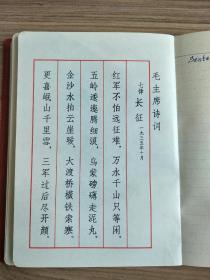 毛主席诗词
七律 长征
一九三五年十月
红军不怕远征难，万水千山只等闲。
五岭逶迤腾细浪，乌蒙磅礴走泥丸。
金沙水拍云崖暖，大渡桥横铁索寒。
更喜岷山千里雪，三军过后尽开颜。